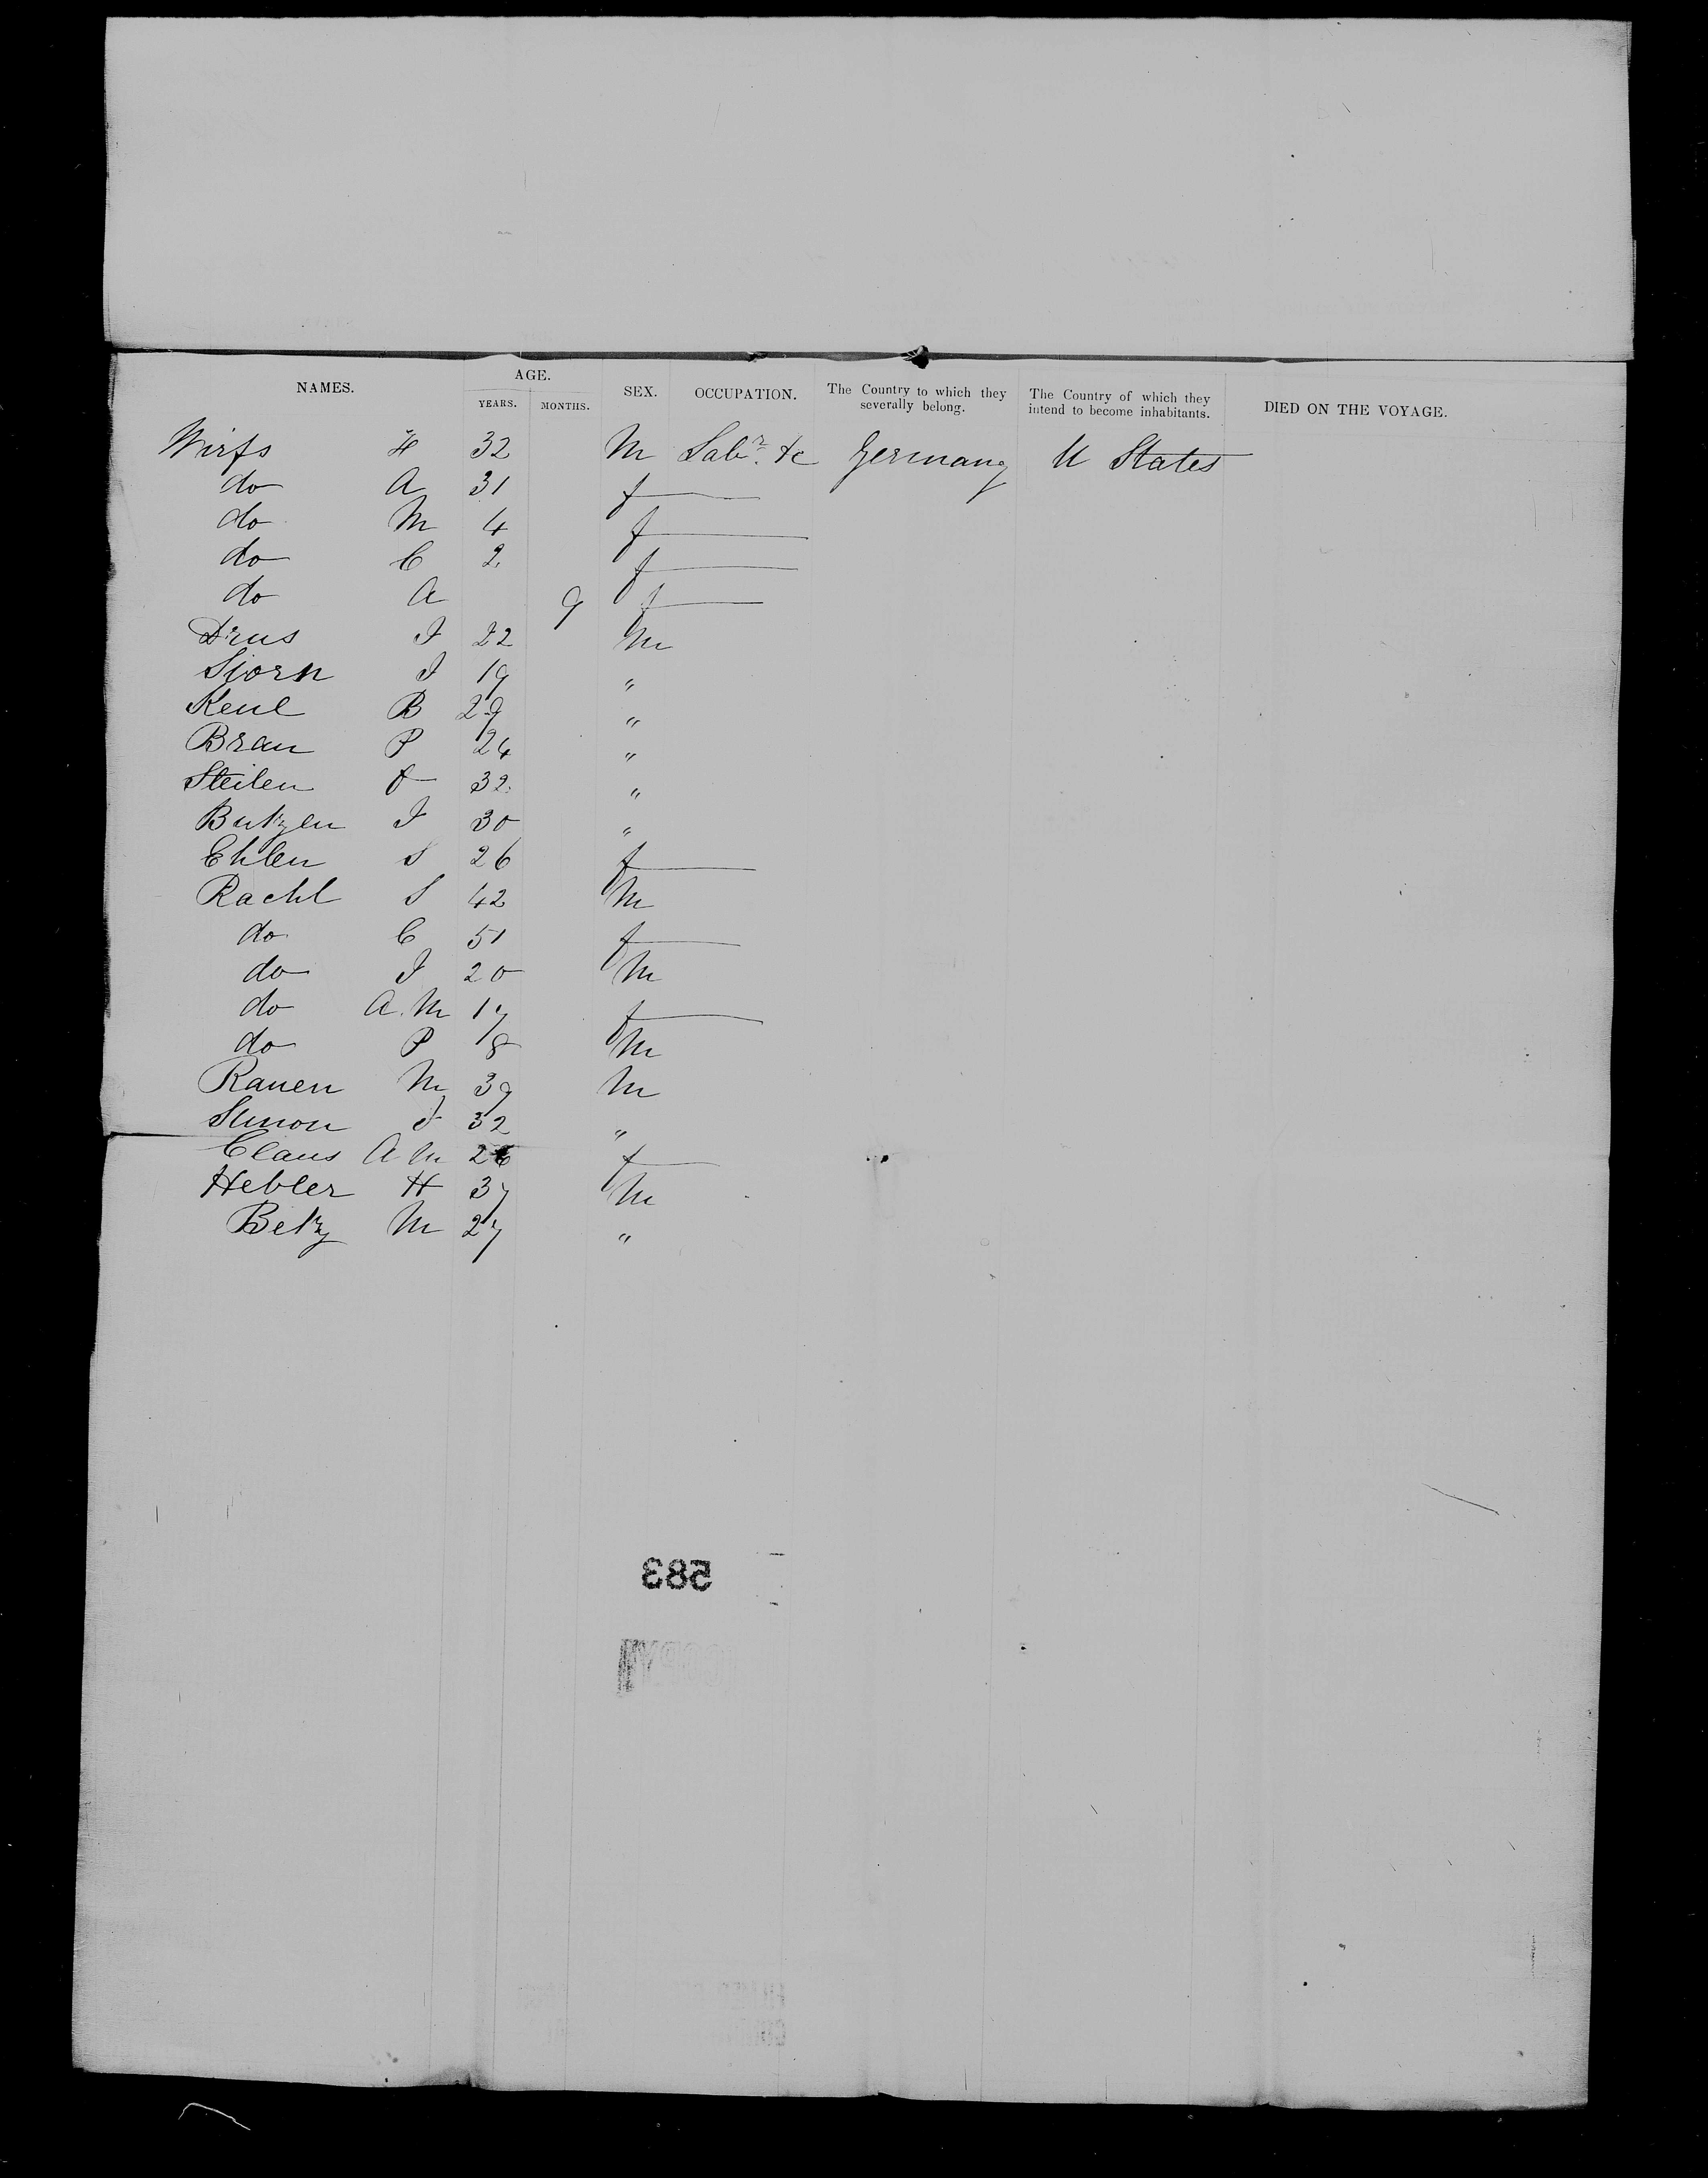 NAMES. AGE. SEX. OCCUPATION. The Country to which they severally belong. The Country of which they intend to become inhabitants. DIED ON THE VOYAGE.
YEARS. MONTHS.
Wirfs H 32 M Labr. &c Germany U States
do A 31 f
do M 4 f
do C 2 f
do A 9 f
Drus J 22 M
Sjorn J 19 "
Keul B 29 "
Brau P 24 "
Steilen 32 "
Butzen J 30 "
Ehlen S 26 f
Rachl S 42 M
do C 51 f
do J 20 M
do A. M 17 f
do P 8 M
Rauen M 39 M
Simon J 32 "
Claus A M 26 f
Hebler H 37 M
Betz M 27 "
583
COPY